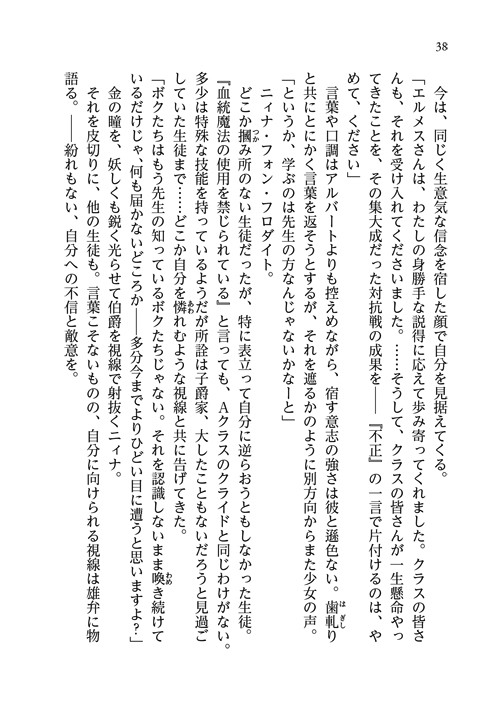 38
今は、同じく生意気な信念を宿した顔で自分を見据えてくる。
「エルメスさんは、わたしの身勝手な説得に応えて歩み寄ってくれました。クラスの皆さ
んも、それを受け入れてくださいました。……そうして、クラスの皆さんが一生懸命やっ
てきたことを、その集大成だった対抗戦の成果を――『不正』の一言で片付けるのは、や
めて、ください」
言葉や口調はアルバートよりも控えめながら、宿す意志の強さは彼と遜色ない。歯軋り
と共にとにかく言葉を返そうとするが、それを遮るかのように別方向からまた少女の声。
「というか、学ぶのは先生の方なんじゃないかなーと」
ニィナ・フォン・フロダイト。
どこか摑み所のない生徒だったが、特に表立って自分に逆らおうともしなかった生徒。
『血統魔法の使用を禁じられている』と言っても、Aクラスのクライドと同じわけがない。
多少は特殊な技能を持っているようだが所詮は子爵家、大したこともないだろうと見過ご
していた生徒まで……どこか自分を憐れむような視線と共に告げてきた。
「ボクたちはもう先生の知っているボクたちじゃない。それを認識しないまま喚き続けて
いるだけじゃ、何も届かないどころか――多分今までよりひどい目に遭うと思いますよ？」
金の瞳を、妖しくも鋭く光らせて伯爵を視線で射抜くニィナ。
それを皮切りに、他の生徒も。言葉こそないものの、自分に向けられる視線は雄弁に物
語る。――紛れもない、自分への不信と敵意を。